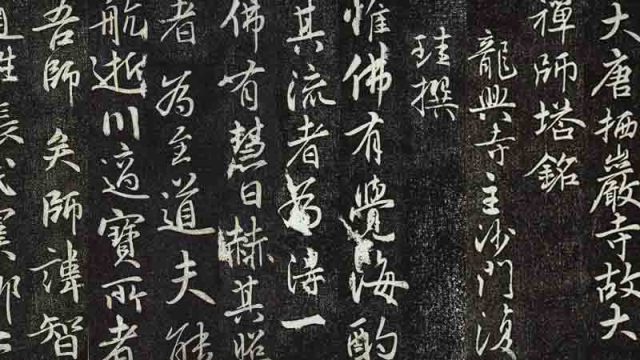 大唐栖巖寺故大
禪師塔銘
龍興寺主沙門復
珪撰
惟佛有覺海酌
其流者為得一
佛有慧日赫其照
者為至道夫能
航逝川適寶所者
吾師矣師諱智
通姓